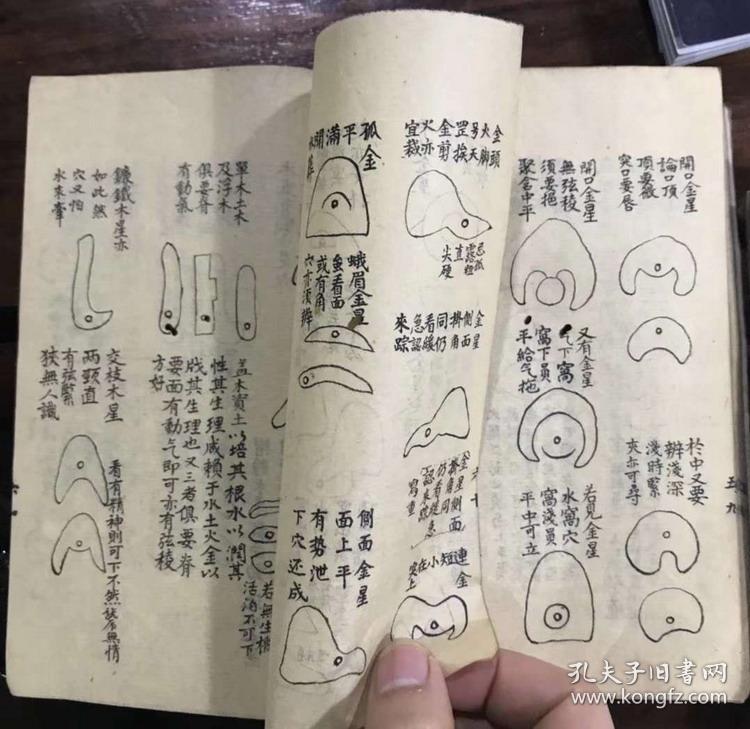 開口金星
論口頂
頂要微
突口要唇
於中又要
辨淺深
淺時緊
夾亦可尋
開口金星
無弦稜
須要挹
聚會中平
又有金星
气下窩
窩下員
平給气拖
若見金星
水窩穴
窩淺員
平中可立
五九
金頭
火脚
号天
罡挨
金剪
火亦
宜裁
忌孤
露粗
直
尖硬
金星
側面
掛角
同仍
看緩
急認
來踪
金星側面
掛角同
仍看緩急
認來踪
連金
短
小
在
突上
孤金
平
滿
開
蛾眉金星
虽看面
或有角
穴亦須辨
側面金星
面上平
有势泄
下穴还成
單木土木
及浮木
俱要脊
有動氣
鐮鈚木星亦
如此然
穴又怕
水來牽
盖木資土以培其根水以潤其
性其生理咸賴于水土火金以
戕其生理也又三者俱要脊
要面有動气即可亦有弦稜
方好
若無生機
活泊不可下
交枝木星
兩頭直
有弦緊
狹無人識
看有精神則可下不然妖本無情
孔夫子旧書网
www.kongfz.com